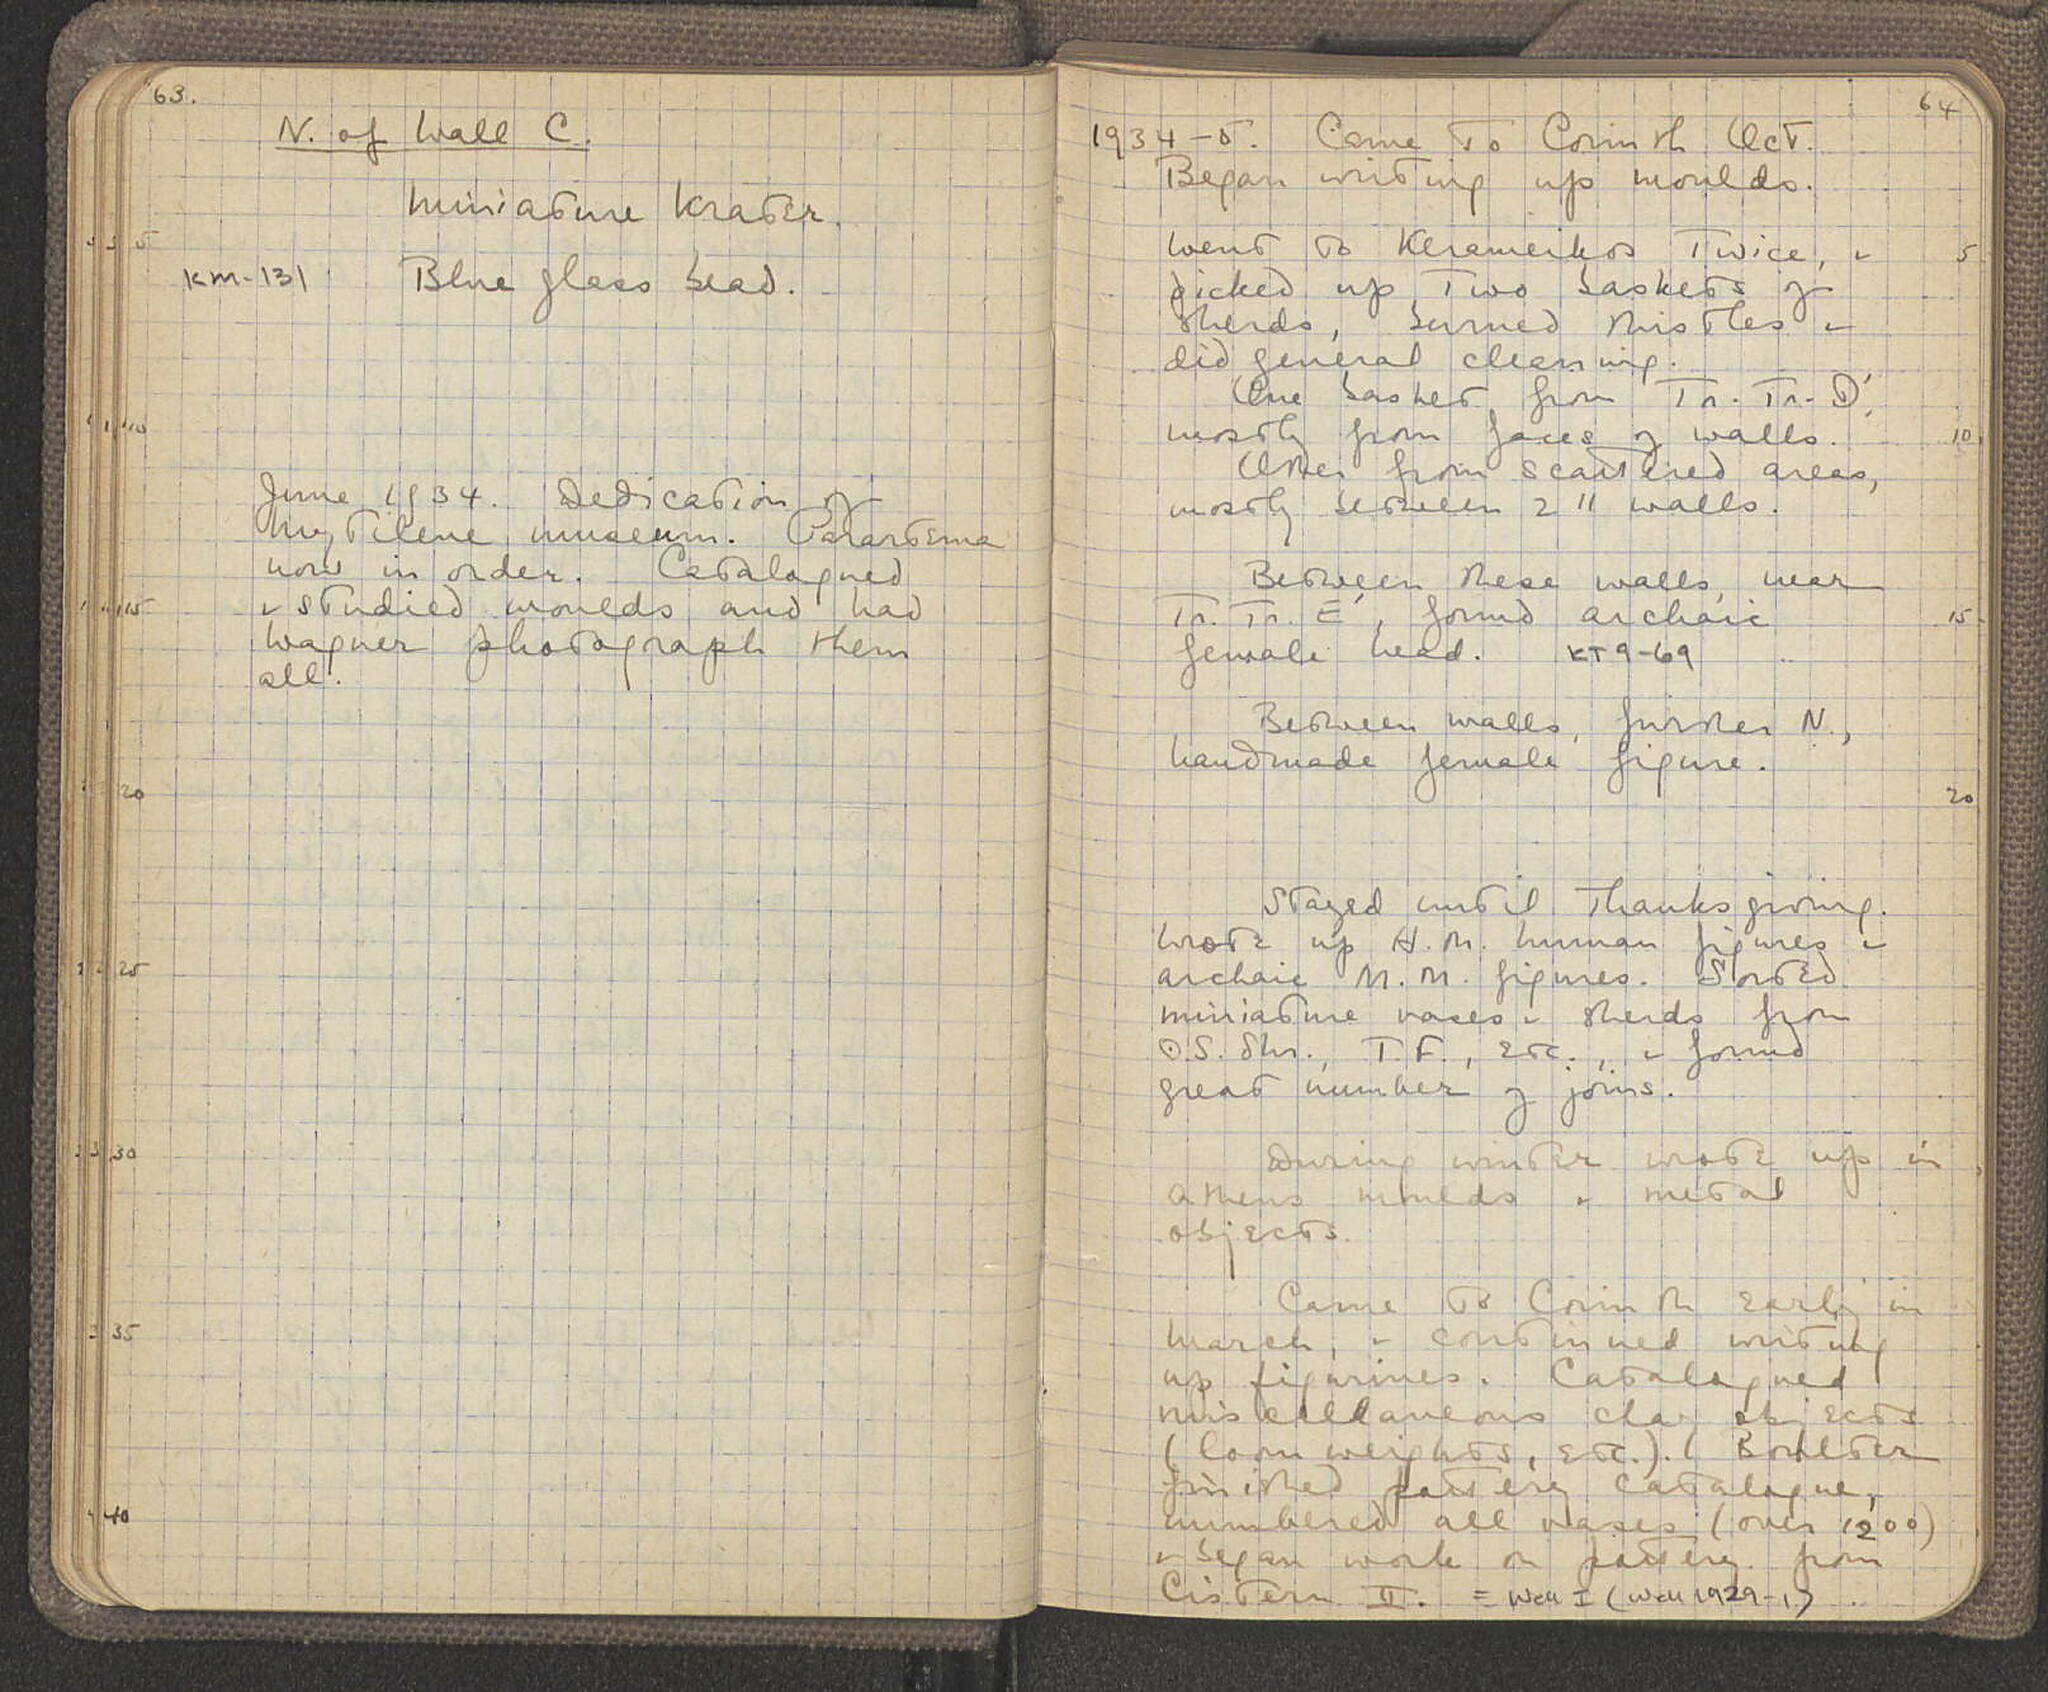 63.
N. of Wall C.
Miniature Krater.
5
KM-131 Blue glass bead.
10
June 1934. Dedication of
Mytilene museum.
now in order. Catalogued
15
& studied moulds and had
Wagner photograph them
all.
20
25
30
35
40
64
1934-5. Came to Corinth Oct.
Began writing up moulds.
Went to Kerameikos twice, & 5
picked up two baskets of
sherds, burned thistles &
did general cleaning.
One basket from Tr. Tr. D',
mostly from faces of walls. 10
Other from scattered areas,
mostly between 2 || walls.
Between these walls, near
Tr. Tr. E', found archaic 15
female head. KT9-69
Between walls, further N.,
handmade female figure.
20
Stayed until Thanksgiving.
Wrote up H.M. human figures &
archaic M.M. figures. Sorted
miniature vases & sherds from
O.S. Shr., T.F., etc., & found
great number of joins.
During winter wrote up in
Athens moulds & metal
objects.
Came to Corinth early in
March, & continued writing
up figurines. Catalogued
miscellaneous clay objects
(loom weights, etc.). Boulter
finished pottery catalogue,
numbered all vases (over 1200)
& began work on pottery from
Cistern II. = Well I (Well 1929-1)